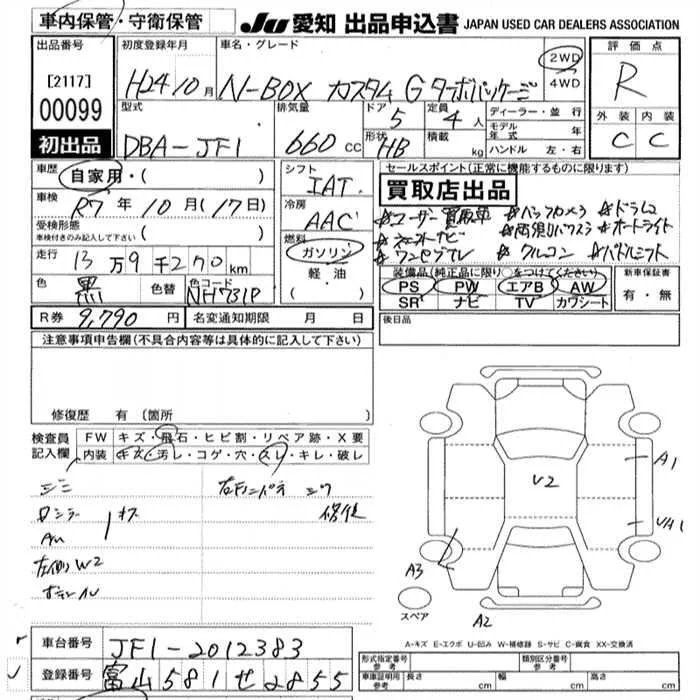 車内保管・守衛保管
JU 愛知 出品申込書 JAPAN USED CAR DEALERS ASSOCIATION
出品番号
[2117]
00099
初出品
初度登録年月
H24 10月
車名・グレード
N-BOX カスタム G ターボパッケージ
2WD
4WD
評価点
R
外装 内装
C C
型式
DBA-JF1
排気量
660 cc
ドア
5
定員
4人
形状
HB
積載
kg
ディーラー・並行
モデル年式 年
ハンドル 左・右
車歴
自家用・( )
車検
R7年10月(17日)
受検形態
車検付きのみ記入して下さい ・( )
走行
13万9千270km
色
黒
色替
色コード
NH731P
シフト
IAT
冷房
AAC
燃料
ガソリン
軽油
( )
セールスポイント(正常に機能するものに限ります)
買取店出品
#ユーザー買取車 #バックカメラ #ドラレコ
#オートライト
#ワンセグTV #クルコン #パドルシフト
装備品(純正品に限り○をつけてください)
PS PW エアB AW
SR ナビ TV カワシート
新車保証書
有・無
R券 9,790円
名変通知期限 月 日
後日品
注意事項申告欄(不具合内容等は具体的に記入して下さい)
修復歴 有 (箇所 )
検査員記入欄
FW キズ・飛石・ヒビ割・リペア跡・X要
内装 キズ・汚レ・コゲ・穴・スレ・キレ・破レ
左側 W2
V2
A1
A3
A2
スペア
A-キズ E-エクボ U-凹み W-補修跡 S-サビ C-腐食 XX-交換済
車台番号 JF1-2012383
登録番号 富山 581 せ 2855
形式指定番号
参考
類別区分番号
参考
車庫証明用
参考
長さ cm 幅 cm 高さ cm